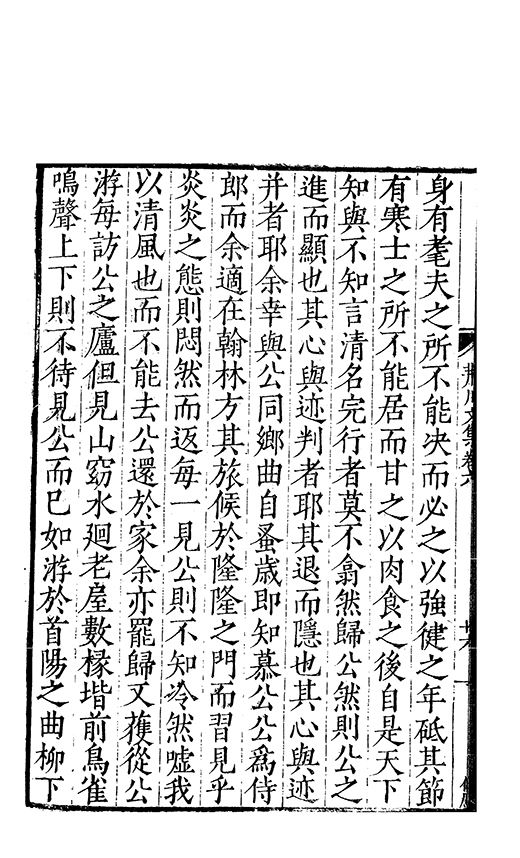 身有耄夫之所不能决而必之以強健之年砥其節
有寒士之所不能居而甘之以肉食之後自是天下
知與不知言清名完行者莫不翕然歸公然則公之
進而顯也其心與迹判者耶其退而隱也其心與迹
并者耶余幸與公同鄉曲自蚤歲即知慕公公爲侍
郎而余適在翰林方其旅候於隆隆之門而習見乎
炎炎之態則悶然而返每一見公則不知冷然噓我
以清風也而不能去公還於家余亦罷歸又獲從公
游每訪公之廬但見山窈水廻老屋數椽堦前鳥雀
鳴聲上下則不待見公而已如游於首陽之曲柳下
荆川文集卷六
廿六